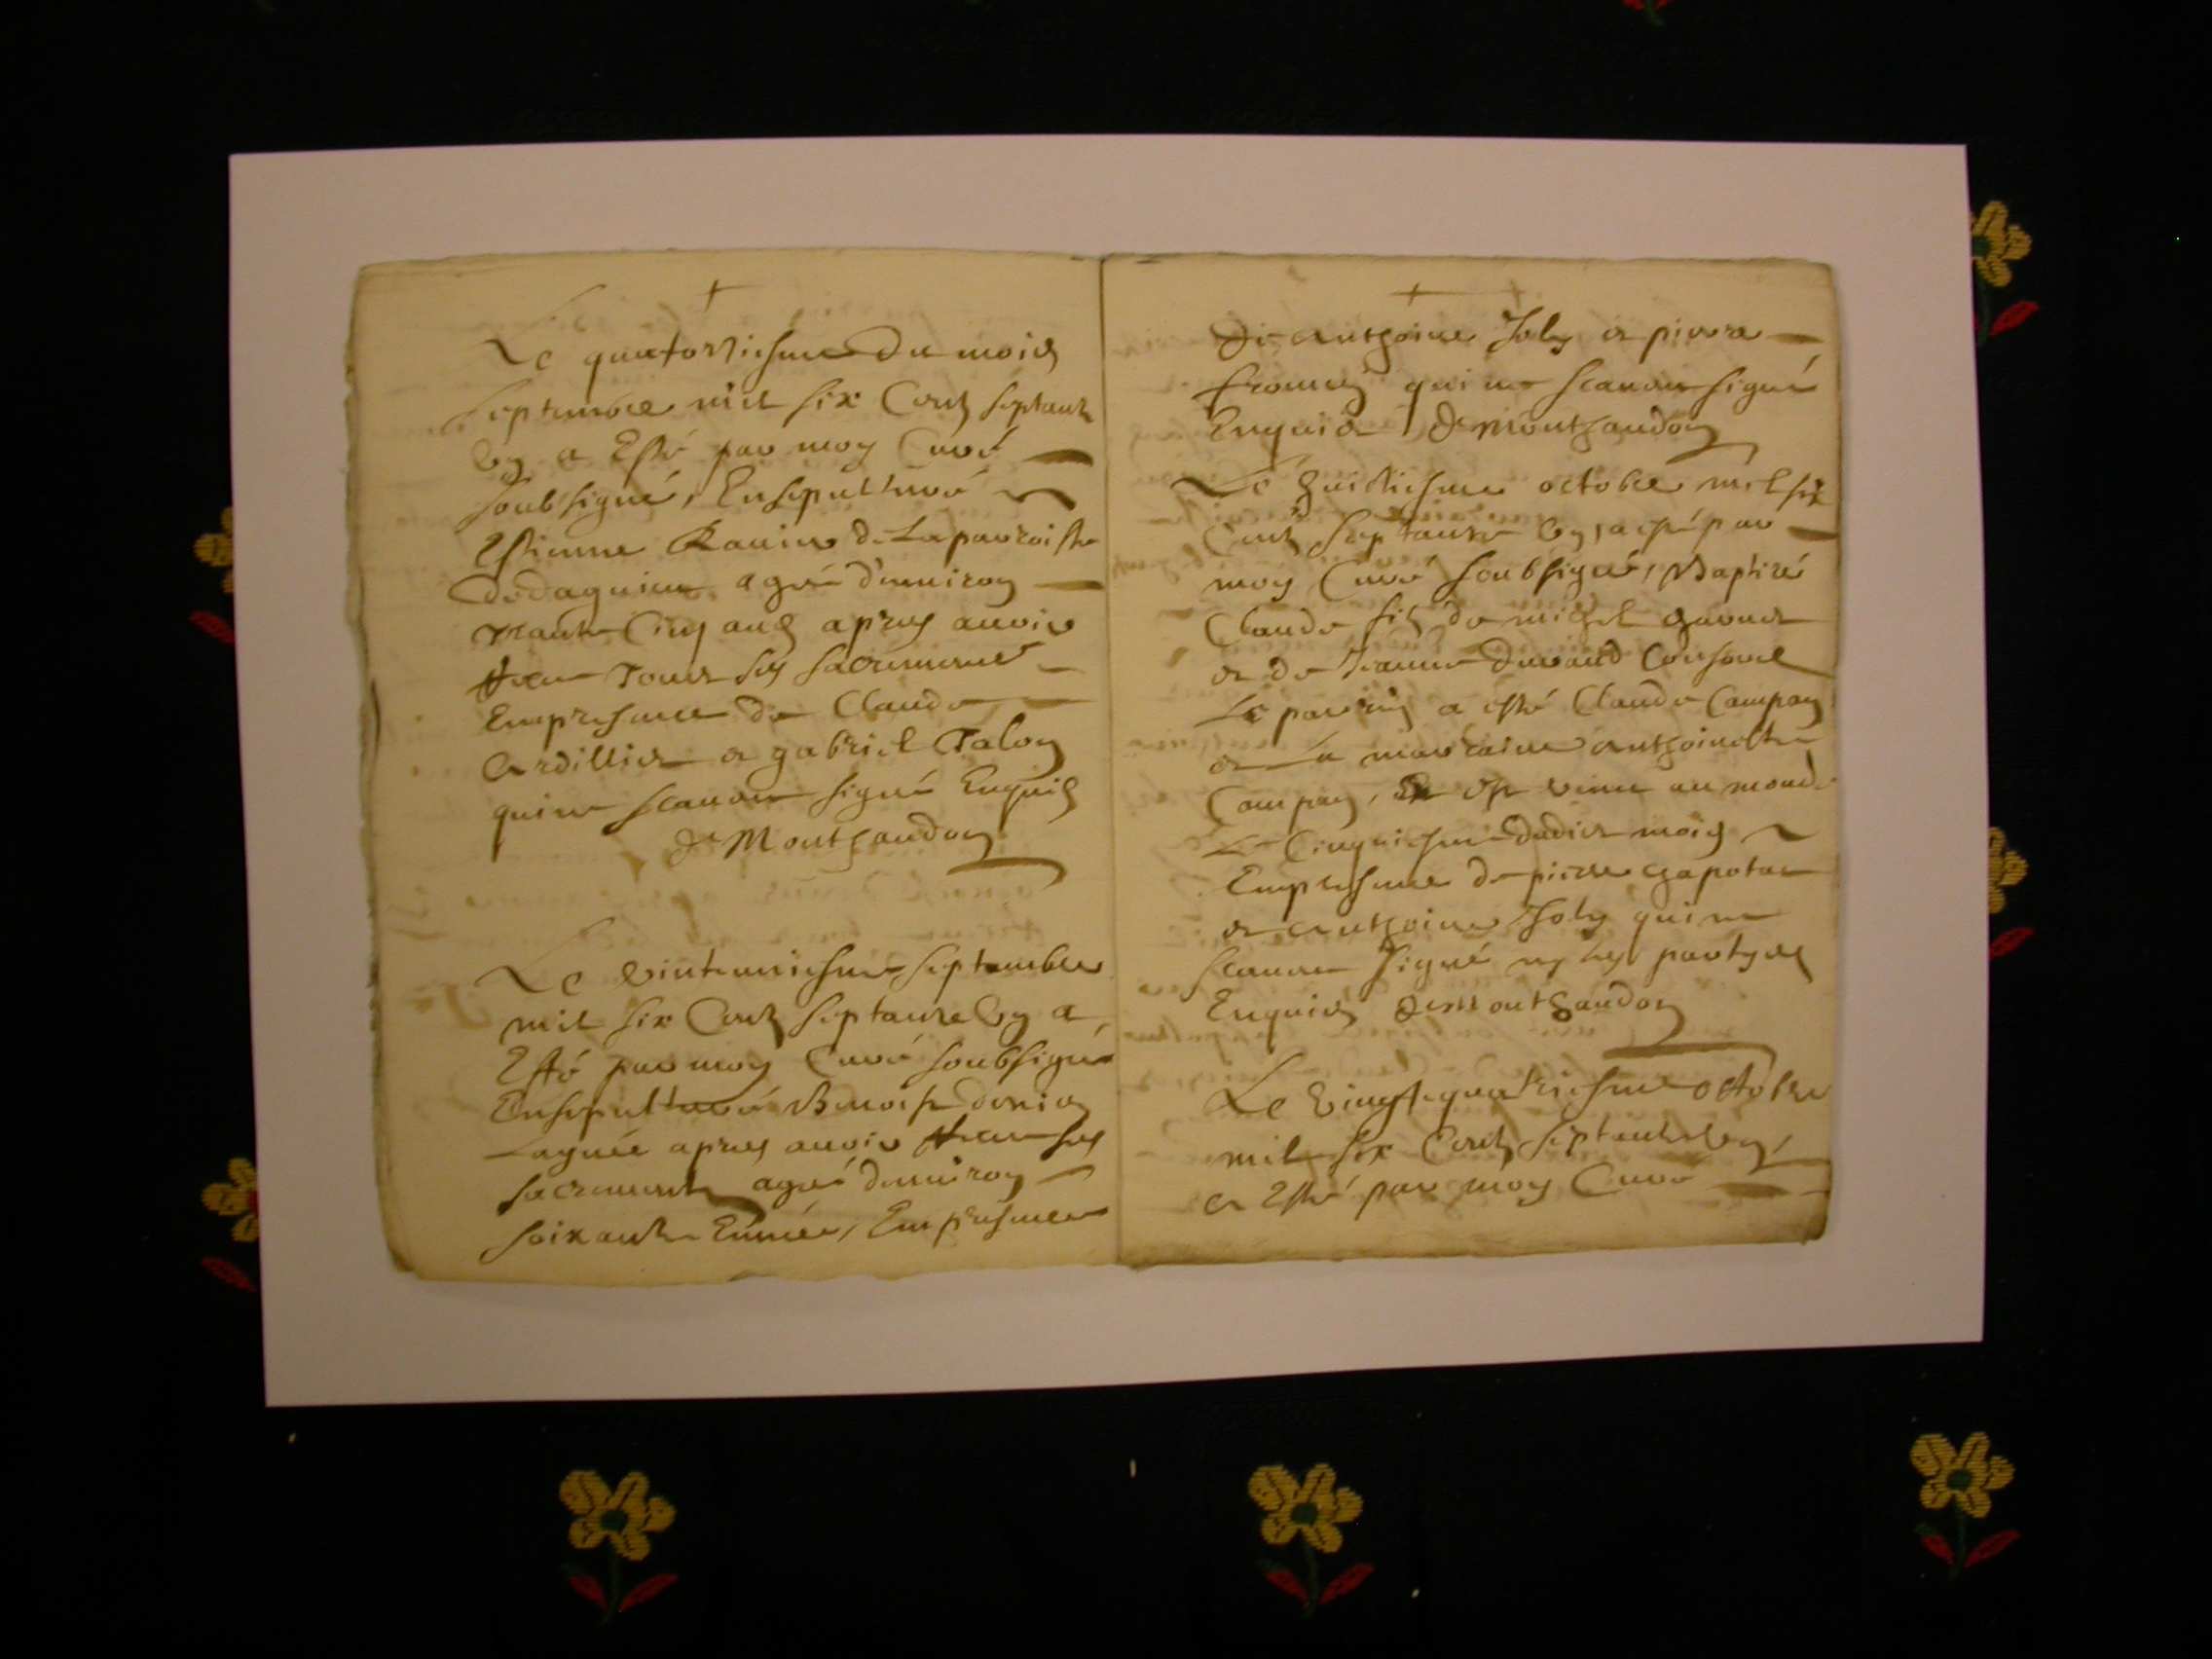 Le quatorziesme du mois
septembre mil six Centz septante
un a Esté par moy Curé
soubsigné, Ensepulturé
Estienne Ravier de La parroisse
agé d'environ
trante Cinq ans apres avoir
receu Tous ses sacremens
En presence de Claude
Ardillier et gabriel Talon
qui ne scavent signé Enquis
de Monthaudon
Le vinteuniesme septembre
mil six Centz septante un a
Esté par moy Curé soubsigné
Ensepulturé Benoist
apres avoir receu ses
sacrements agé denviron
soixante Année, En presence
de Anthoine Joly et pierre
qui ne scavent signé
Enquis de Monthaudon
Le huictiesme octobre mil six
Centz septante un, a esté par
moy Curé soubsigné, Baptizé
Claude filz de michel
et de Jeanne durand
Le parrin a esté Claude Campan
et la marraine anthoinette
Campan, Et est venu au monde
Le Cinquiesme dudict mois
En presence de pierre chapotat
et anthoine Joly qui ne
scavent signé ny les partyes
Enquis de Monthaudon
Le vingtquatriesme octobre
mil six Centz septante un,
a Esté par moy Curé